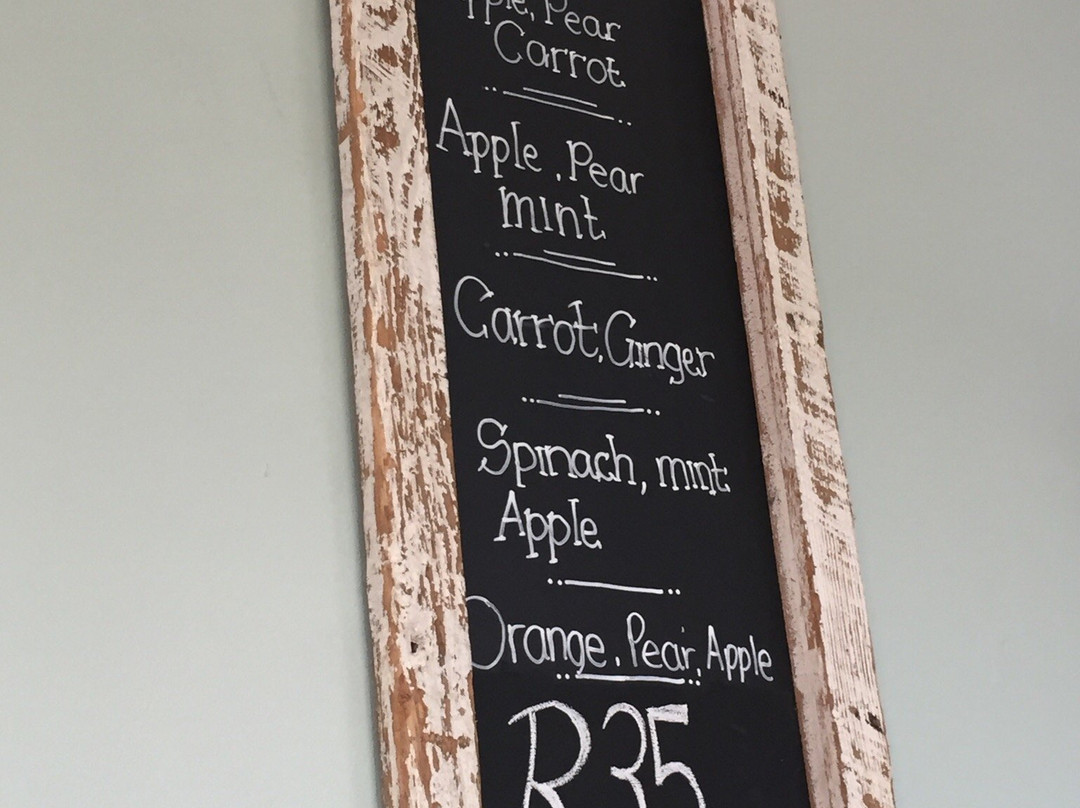 Pear
Carrot
Apple, Pear
mint
Carrot, Ginger
Spinach, mint
Apple
Orange, Pear, Apple
R35